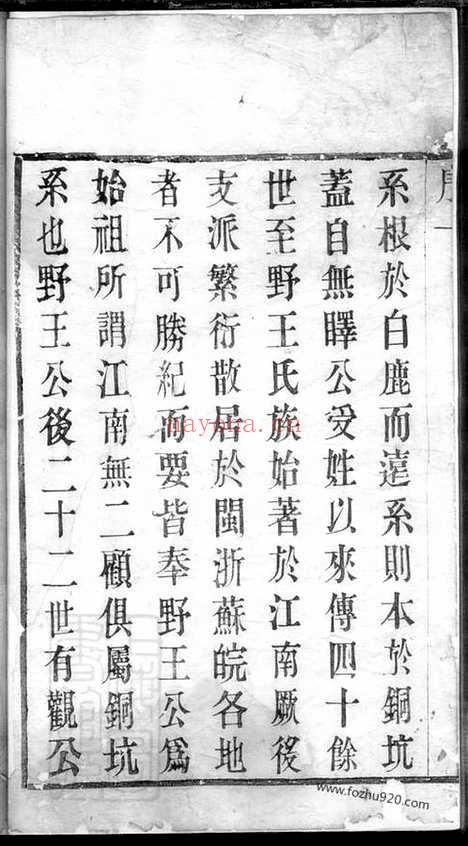 系根於白鹿而遠系則本於銅坑
蓋自無睪公受姓以來傳四十餘
世至野王氏族始著於江南厥後
支派繁衍散居於閩浙蘇皖各地
者不可勝紀而要皆奉野王公爲
始祖所謂江南無二顧俱屬銅坑
系也野王公後二十二世有觀公
www.fozhu920.com